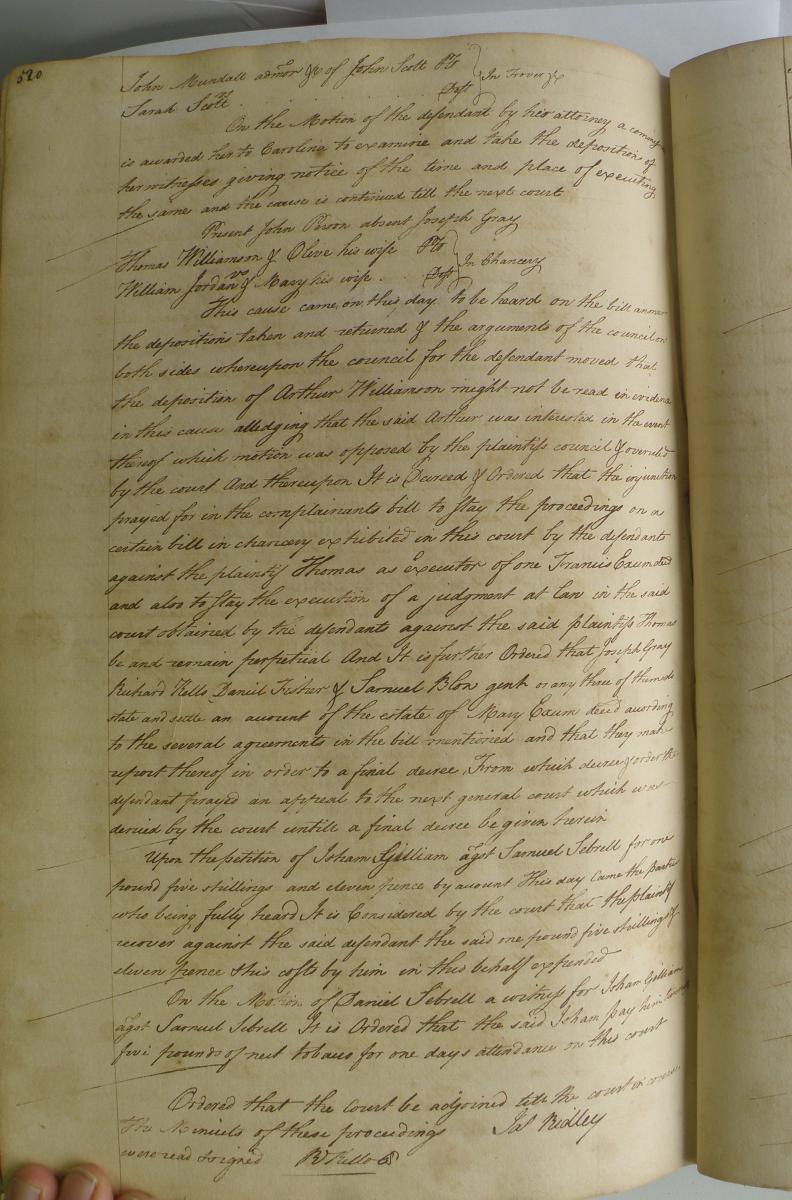 520
John Mundall admor &c of John Scott Plt
vs In Trover &c
Sarah Scott Deft
On the Motion of the defendant by her attorney a
is awarded her to Carolina to examine and take the deposition of
her witnesses giving notice of the time and place of executing
the same and the cause is continued till the next court
Present John Person absent Joseph Gray
Thomas Williamson & Olive his wife Plts
vs In Chancery
William Jordan & Mary his wife Defts
This cause came on this day to be heard on the bill answer
the depositions taken and returned & the arguments of the council on
both sides whereupon the council for the defendant moved that
the deposition of Arthur Williamson might not be read in evidence
in this cause alledging that the said Arthur was interested in the event
thereof which motion was opposed by the plaintifs council & overuled
by the court And thereupon It is Decreed & Ordered that the injunction
prayed for in the complainants bill to stay the proceedings on a
certain bill in chancery exhibited in this court by the defendants
against the plaintif Thomas as executor of one Francis Exum decd
and also to stay the execution of a judgment at law in the said
court obtained by the defendants against the said plaintifs Thomas
be and remain perpetual And It is further Ordered that Joseph Gray
Richard Kello Daniel Fisher & Samuel Blow gent or any three of them do
state and settle an acount of the estate of Mary Exum decd acording
to the several agreements in the bill mentioned and that they make
report thereof in order to a final decree From which decree & order the
defendant prayed an appeal to the next general court which was
denied by the court untill a final decree be given herein
Upon the petition of Isham Gilliam agst Samuel Sebrell for one
pound five shillings and eleven pence by acount This day came the parties
who being fully heard It is Considered by the court that the plaintif
recover against the said defendant the said one pound five shillings &
eleven pence & his costs by him in this behalf expended
On the Motion of Daniel Sebrell a witness for Isham Gilliam
agst Samuel Sebrell It is Ordered that the said Isham pay him twenty
five pounds of neet tobacco for one days attendance on this court
Ordered that the Court be adjoined till the court in course
The Minuts of these proceedings Jas Ridley
were read & signed R Kello